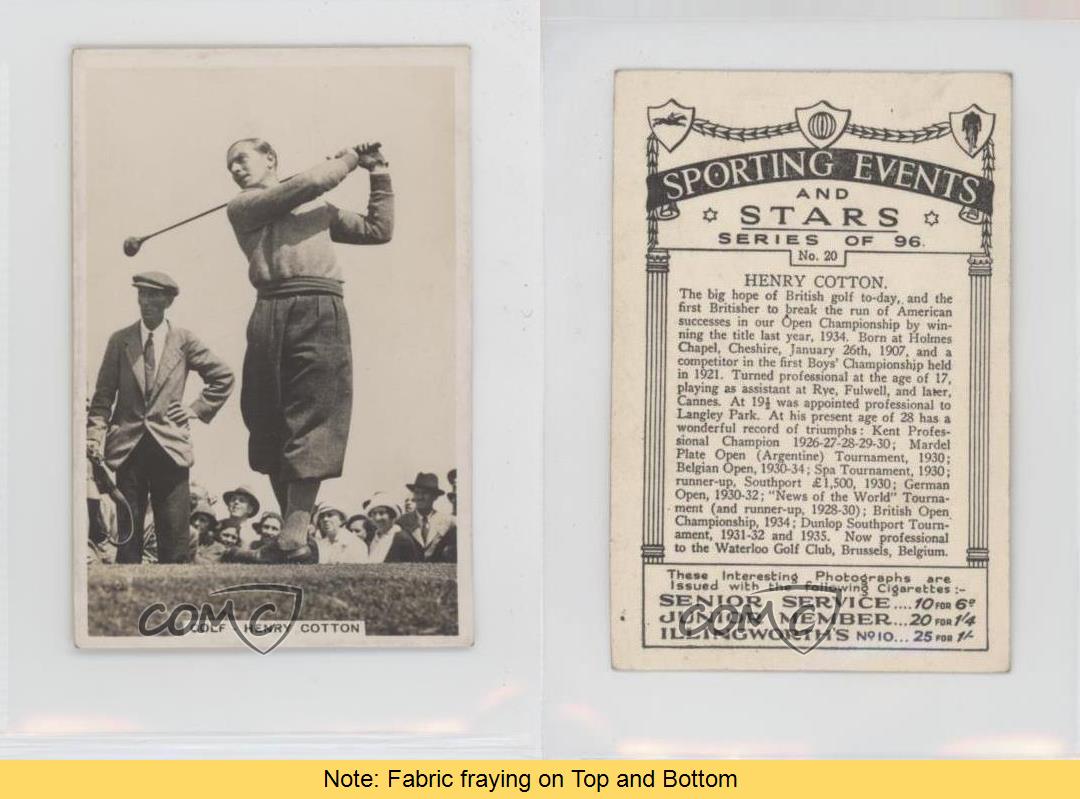 GOLF HENRY COTTON
COMC
SPORTING EVENTS
AND
STARS
SERIES OF 96.
No. 20
HENRY COTTON.
The big hope of British golf to-day, and the
first Britisher to break the run of American
successes in our Open Championship by win-
ning the title last year, 1934. Born at Holmes
Chapel, Cheshire, January 26th, 1907, and a
competitor in the first Boys' Championship held
in 1921. Turned professional at the age of 17,
playing as assistant at Rye, Fulwell, and later,
Cannes. At 19½ was appointed professional to
Langley Park. At his present age of 28 has a
wonderful record of triumphs: Kent Profes-
sional Champion 1926-27-28-29-30; Mardel
Plate Open (Argentine) Tournament, 1930;
Belgian Open, 1930-34; Spa Tournament, 1930;
runner-up, Southport £1,500, 1930; German
Open, 1930-32; "News of the World" Tourna-
ment (and runner-up, 1928-30); British Open
Championship, 1934; Dunlop Southport Tourn-
ament, 1931-32 and 1935. Now professional
to the Waterloo Golf Club, Brussels, Belgium.
These Interesting Photographs are
Issued with the following Cigarettes:-
SENIOR SERVICE....10 FOR 6D
JUNIOR MEMBER...20 FOR 1/4
ILLINGWORTH'S Nº10...25 FOR 1/-
COMC
Note: Fabric fraying on Top and Bottom